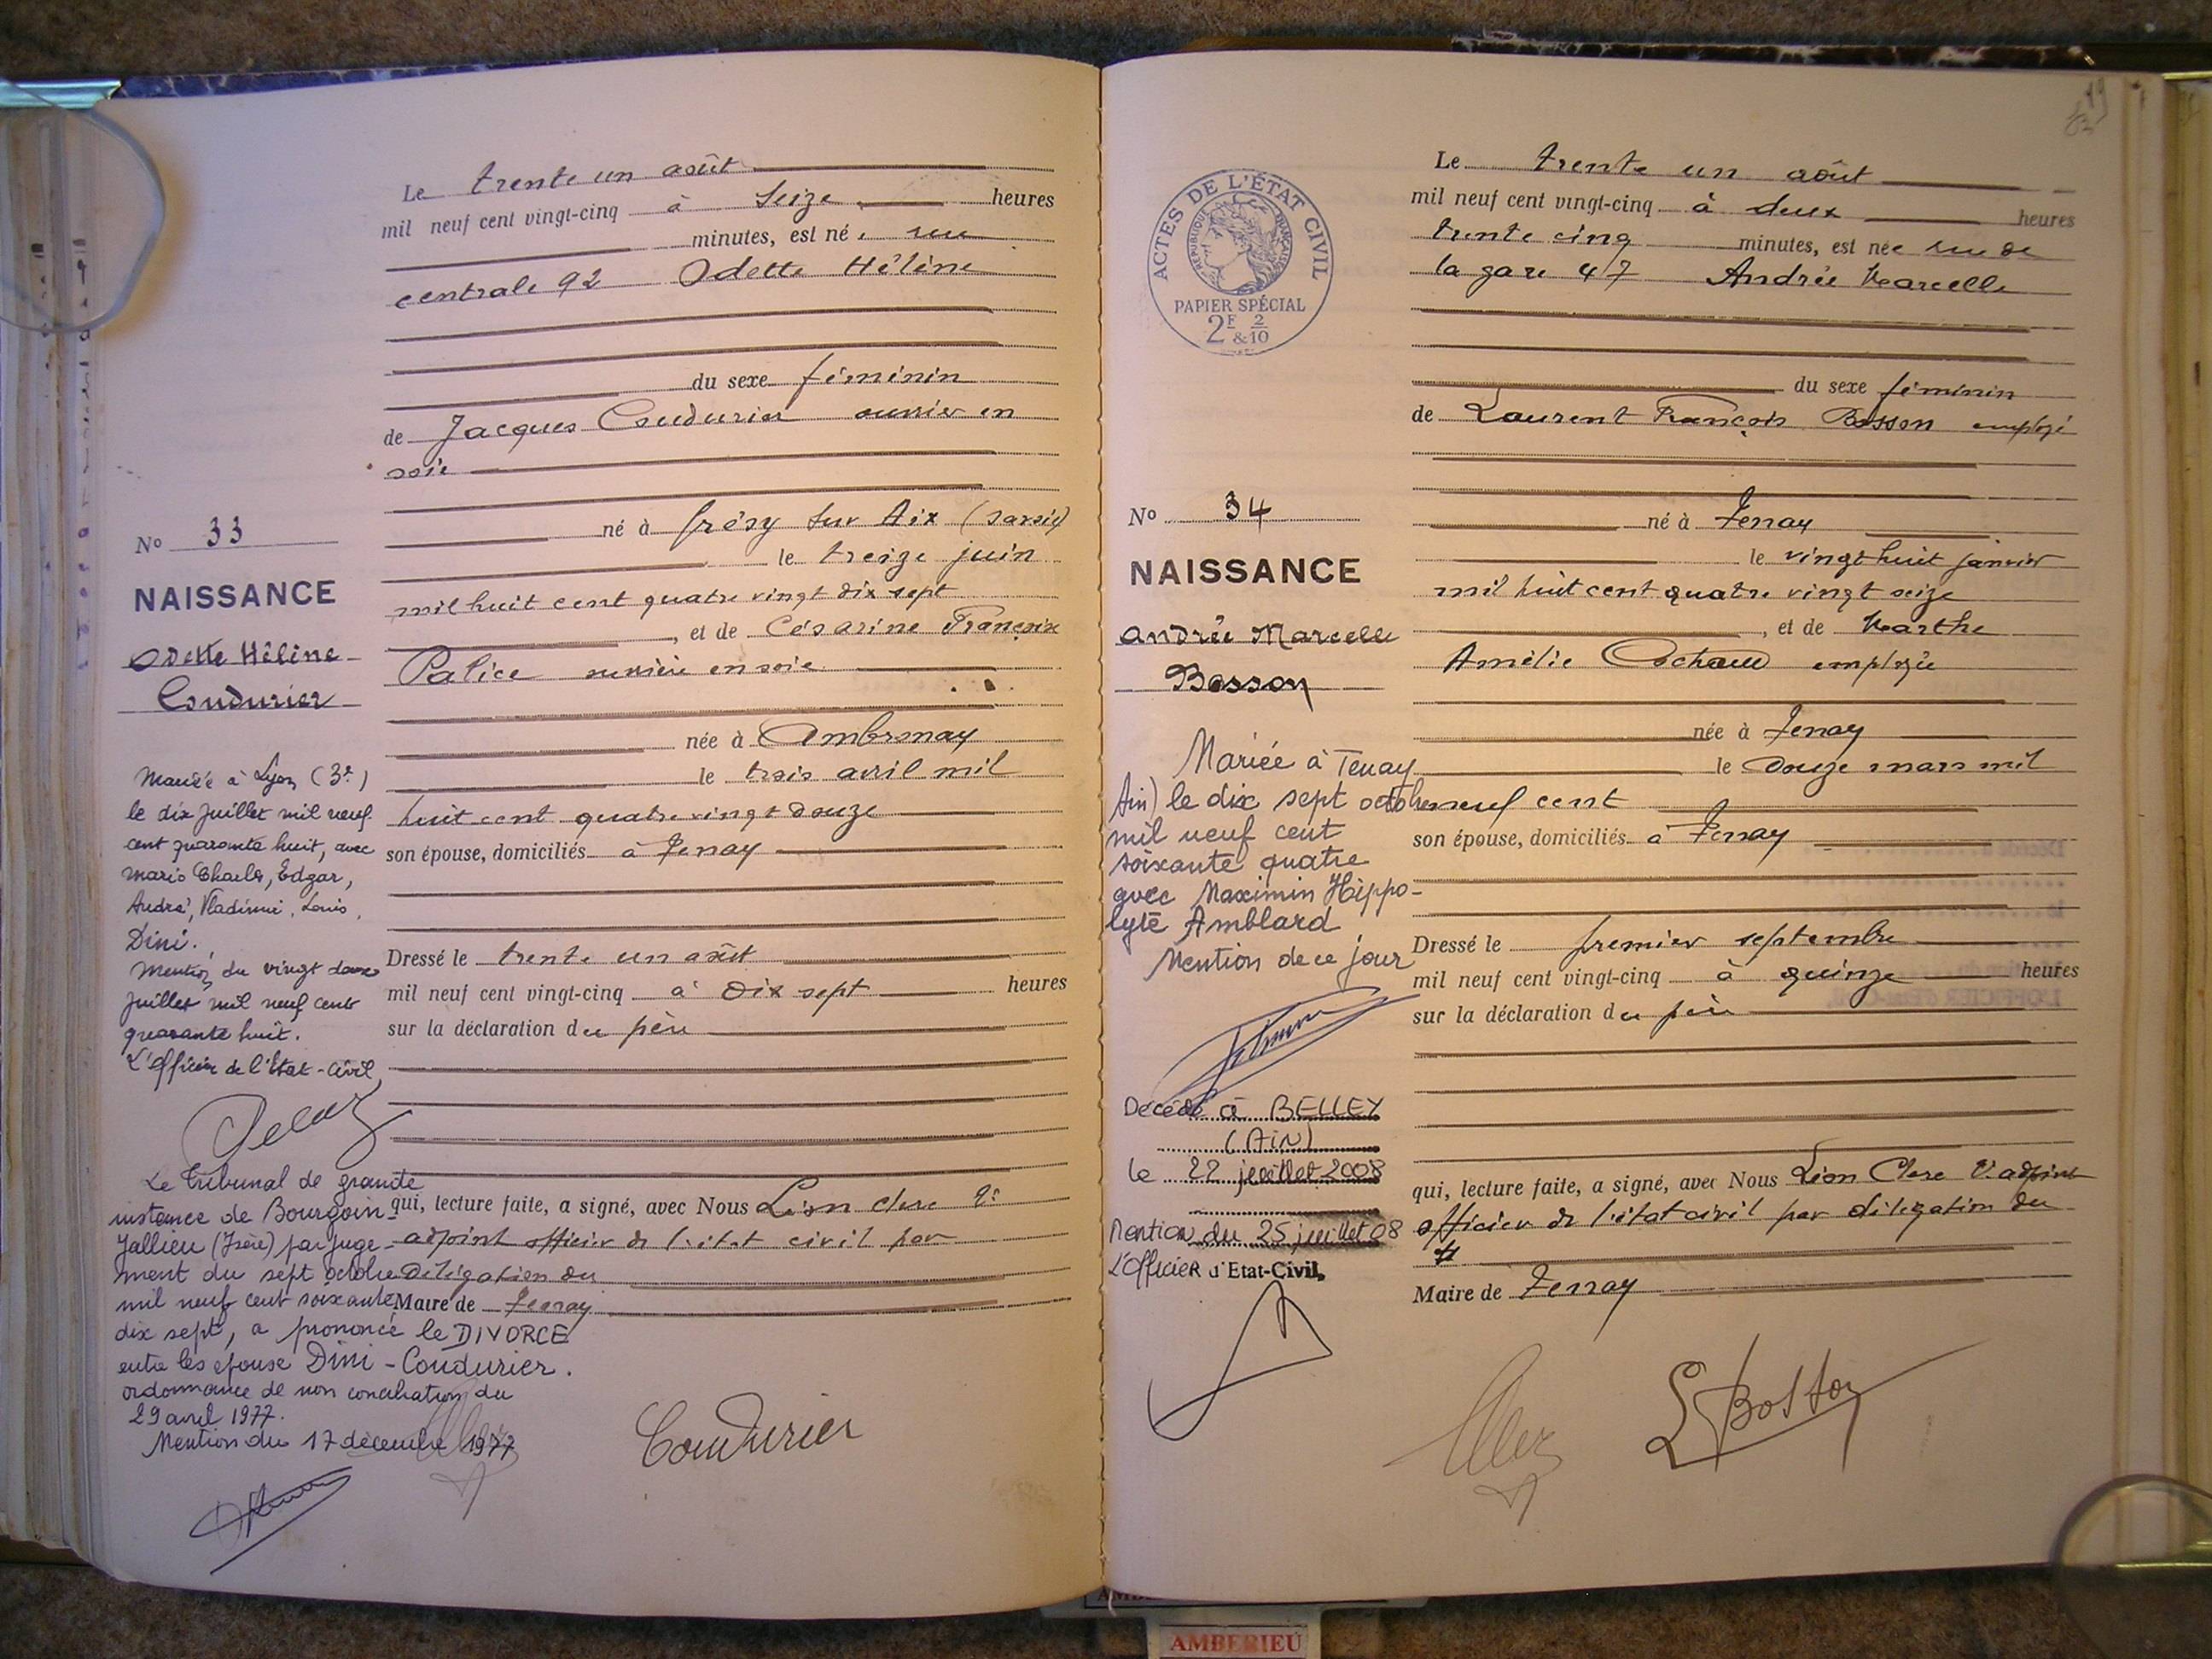 Le trente un août
mil neuf cent vingt-cinq à seize heures
minutes, est né, rue
centrale 92 Odette Hélène
du sexe féminin
de Jacques Coudurier ouvrier en
soie
né à Grésy sur Aix (Savoie)
le treize juin
mil huit cent quatre vingt dix sept
, et de Césarine Françoise
Palice ouvrière en soie
née à Ambronay
le trois avril mil
huit cent quatre vingt douze
son épouse, domiciliés à Tenay
Dressé le trente un août
mil neuf cent vingt-cinq à dix sept heures
sur la déclaration du père
qui, lecture faite, a signé, avec Nous Léon Clerc
adjoint officier de l'état civil par
délégation du
Maire de Tenay
Coudurier
No 33
NAISSANCE
Odette Hélène
Coudurier
Mariée à Lyon (3e)
le dix juillet mil neuf
cent quarante huit, avec
Mario Charles, Edgar,
André, Vladimir, Louis,
Dini.
Mention du vingt douze
juillet mil neuf cent
quarante huit.
L'Officier de l'Etat-Civil
Le Tribunal de grande
instance de Bourgoin-
Jallieu (Isère) par juge-
ment du sept octobre
mil neuf cent soixante
dix sept, a prononcé le DIVORCE
entre les époux Dini - Coudurier.
ordonnance de non conciliation du
29 avril 1977.
Mention du 17 décembre 1977
ACTES DE L'ÉTAT CIVIL
RÉPUBLIQUE FRANÇAISE
PAPIER SPÉCIAL
2F & 2/10
Le trente un août
mil neuf cent vingt-cinq à deux heures
trente cinq minutes, est née rue de
la gare 47 Andrée Marcelle
du sexe féminin
de Laurent François Bosson employé
né à Tenay
le vingt huit janvier
mil huit cent quatre vingt seize
, et de Marthe
Amélie employée
née à Tenay
le douze mars mil
neuf cent
son épouse, domiciliés à Tenay
Dressé le premier septembre
mil neuf cent vingt-cinq à quinze heures
sur la déclaration du père
qui, lecture faite, a signé, avec Nous Léon Clerc adjoint
officier de l'état civil par délégation du
Maire de Tenay
L Bosson
No 34
NAISSANCE
Andrée Marcelle
Bosson
Mariée à Tenay
Ain) le dix sept octobre
mil neuf cent
soixante quatre
avec Maximin Hippo-
lyte Amblard
Mention de ce jour
Décédée à BELLEY
(AIN)
le 22 juillet 2008
Mention du 25 juillet 08
L'Officier d'Etat-Civil,
AMBERIEU